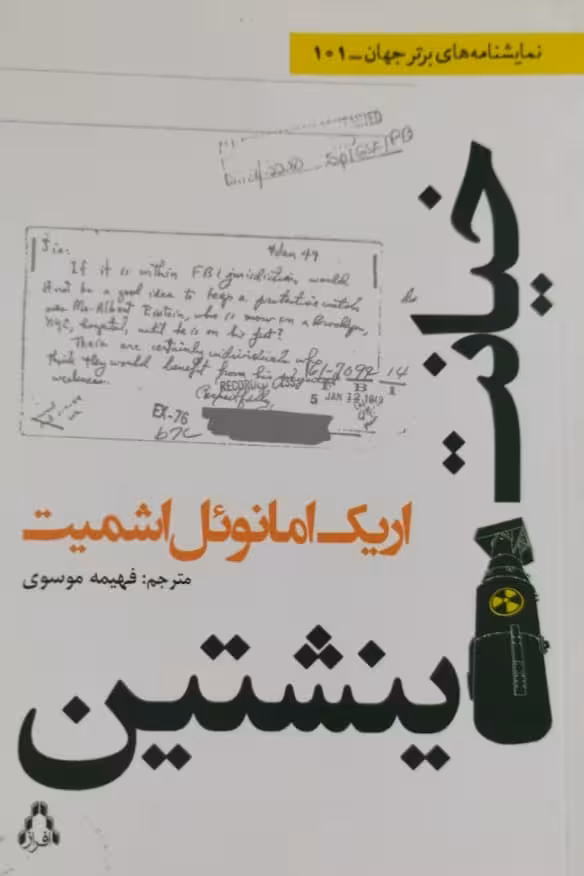 نمایشنامه‌های برتر جهان_۱۰۱
خیانت
Sir: 4 Jan 49
If it is within FBI jurisdiction, would
it not be a good idea to keep a protective watch
over Mr. Albert Einstein, who is now in a Brooklyn,
NYC, hospital, until he is on his feet?
There are certainly individuals who
think they would benefit from his
weakness.
61-7099 14
RECORDED
Respectfully,
5 JAN 1949
EX-76
b7c
اریک امانوئل اشمیت
مترجم: فهیمه موسوی
اینشتین
افراز